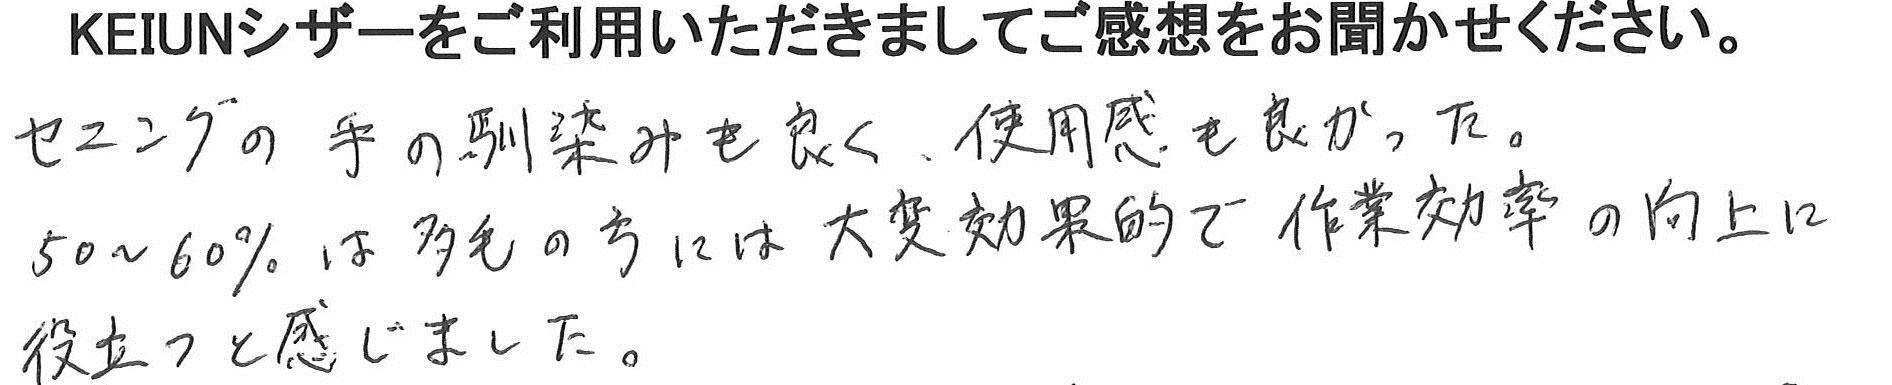 KEIUNシザーをご利用いただきましてご感想をお聞かせください。
セニングの手の馴染みも良く、使用感も良かった。
50~60%は多毛の方には大変効果的で作業効率の向上に
役立つと感じました。